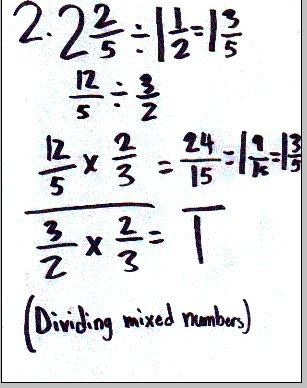 2. 2 2/5 ÷ 1 1/2 = 1 3/5
12/5 ÷ 3/2
12/5 x 2/3 = 24/15 = 1 9/15 = 1 3/5
3/2 x 2/3 = 1
(Dividing mixed numbers)